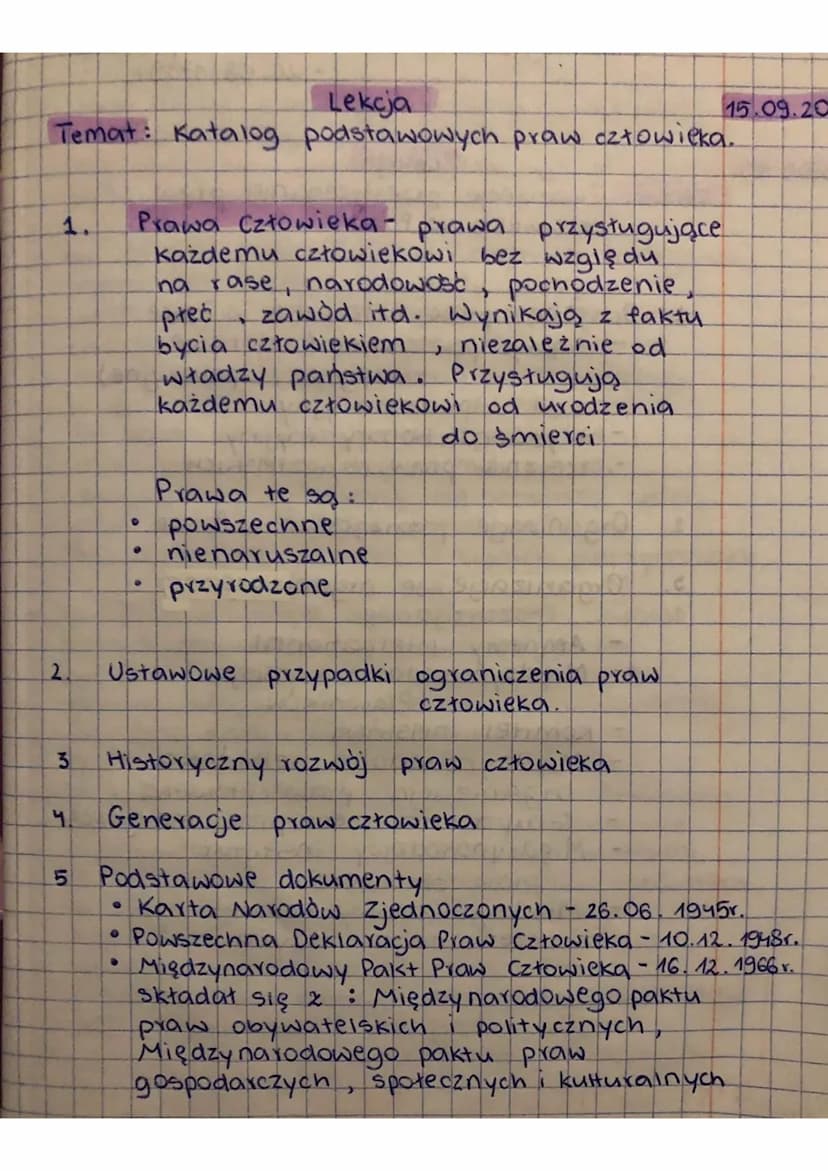 Lekcja
15.09.20
Temat: Katalog podstawowych praw człowieka.
1. Prawa Człowieka - prawa przysługujące
każdemu człowiekowi bez względu
na rase, narodowość, pochodzenie,
płeć, zawód itd. Wynikają z faktu
bycia człowiekiem, niezależnie od
władzy państwa. Przysługują
każdemu człowiekowi od urodzenia
do śmierci
Prawa te są:
• powszechne
• nienaruszalne
• przyrodzone
2. Ustawowe przypadki ograniczenia praw
człowieka.
3 Historyczny rozwój praw człowieka
4. Generacje praw człowieka
5 Podstawowe dokumenty
• Karta Narodów Zjednoczonych - 26.06. 1945r.
• Powszechna Deklaracja Praw Człowieka - 10.12. 1948r.
• Międzynarodowy Pakt Praw Człowieka - 16. 12. 1966r.
składał się z : Międzynarodowego paktu
praw obywatelskich i politycznych,
Międzynarodowego paktu praw
gospodarczych, społecznych i kulturalnych